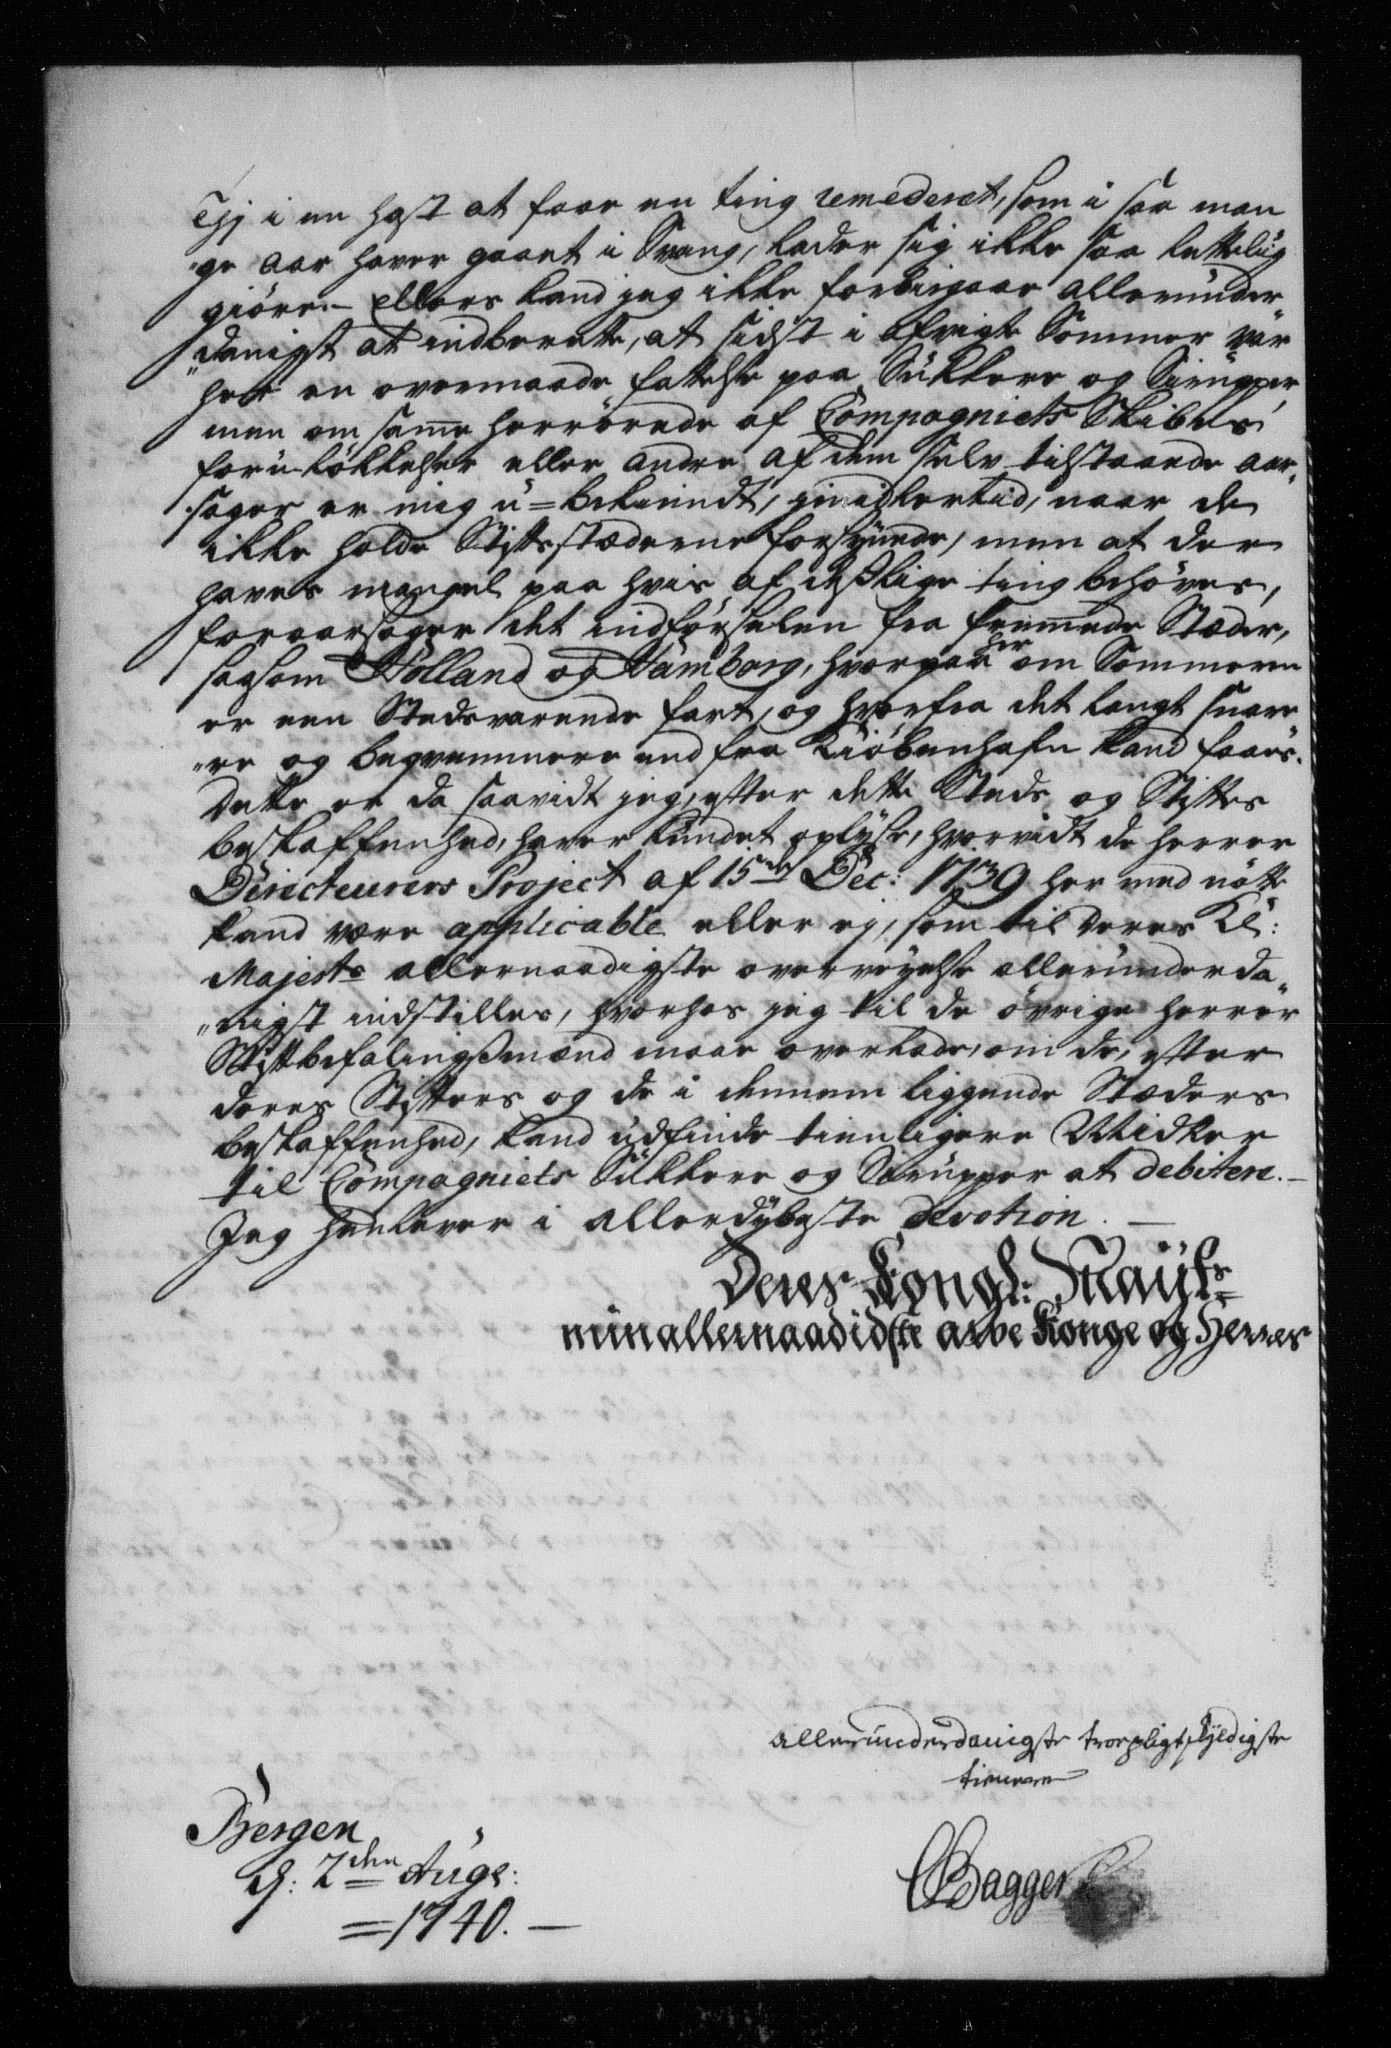 Thj i en hast at faae en ting remederet, som i saa man
„ge Aar haver gaaet i Svang, lader sig ikke saa letteliig
giöre. – Ellers kand jeg ikke forbigaae allerunder
„danigst at indberette, at sidst i afvigte Sommer var
her en overmaade fattelse paa Sukkere og Sirupper
men om samme herrörede af Compagniets Skibes
foruløkkelser eller andre af dem selv tilstaaende Aar„
„sager er mig u=bekiendt, imidlertid, naar de
ikke holde Stiftsstæderne forsÿnede, men at der
haves mangel paa hvis af desslige ting behöves,
foraarsager det indförselen fra fremmede Stæder,
saasom Holland og Hamborg, hvorpaa her om Sommeren
er een Stedsvarende fart, og hvorfra det langt snare
„re og beqvemmere end fra Kiöbenhafn kand faaes.
Dette er da saavidt jeg, efter dette Steds og Stiftes
beskaffenhed, haver kundet oplÿse, hvorvidt de Herrer
Directeurers Project af 15de Dec: 1739 her med nötte
kand være applicable eller ej, som til Deres Kl:
Majests allernaadigste overveyelse allerunderda„
„nigst indstilles, hvorhos jeg til de övrige Herrer
Stiftbefalingsmænd maae overlade, om de, efter
deres Stifters og de i dennem liggende Stæders
beskaffenhed, kand udfinde tienligere Midler
til Compagniets Sukkere og Sirupper at debitere. –
Jeg henlever i allerdÿbeste devotion. –
Deres Kongl: Maÿts
min allernaadidste arve Konge og Herres
allerunderdanigste troepligtskyldigste
tienere
CBagger
Bergen
d: 2den Aug:
= 1740. –